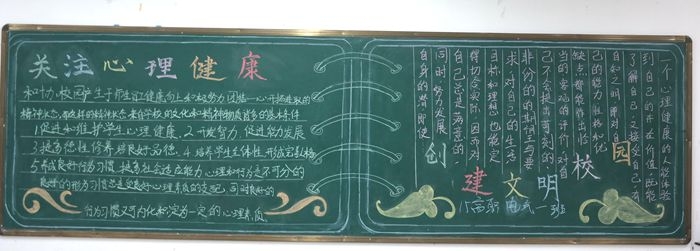 关注心理健康
和协力,校园产生于师生的健康向上、积极努力、团结一心、开拓进取的
精神状态,而这样的精神状态来自学校的文化和精神物质首务的基本特件
1.促进和维护学生心理健康 2.开发智力,促进能力发展
3.提高德性修养,培良好品德 4.培养学生主体性,形成完善人格
5.养成良好行为习惯,提高社会适应能力心理和行为是不可分的
良好的行为习惯总是受良好心理素质的支配,同时良好的
行为习惯又可内化和淀为一定的心理素质
一个心理健康的人能体验
到自己的存在价值,既能
了解自己,又接受自己,有
自知之明,即对自
己的能力、性格和优
缺点都能作出恰
当的客观的评价;对自
己不会提出苛刻的、
非份的期望与要
求;对自己的生活
目标和理想也能定
得切合实际,因而对
自己总是满意的;
同时,努力发展
自身的潜能,即使
创建文明校园
15高职电气一班